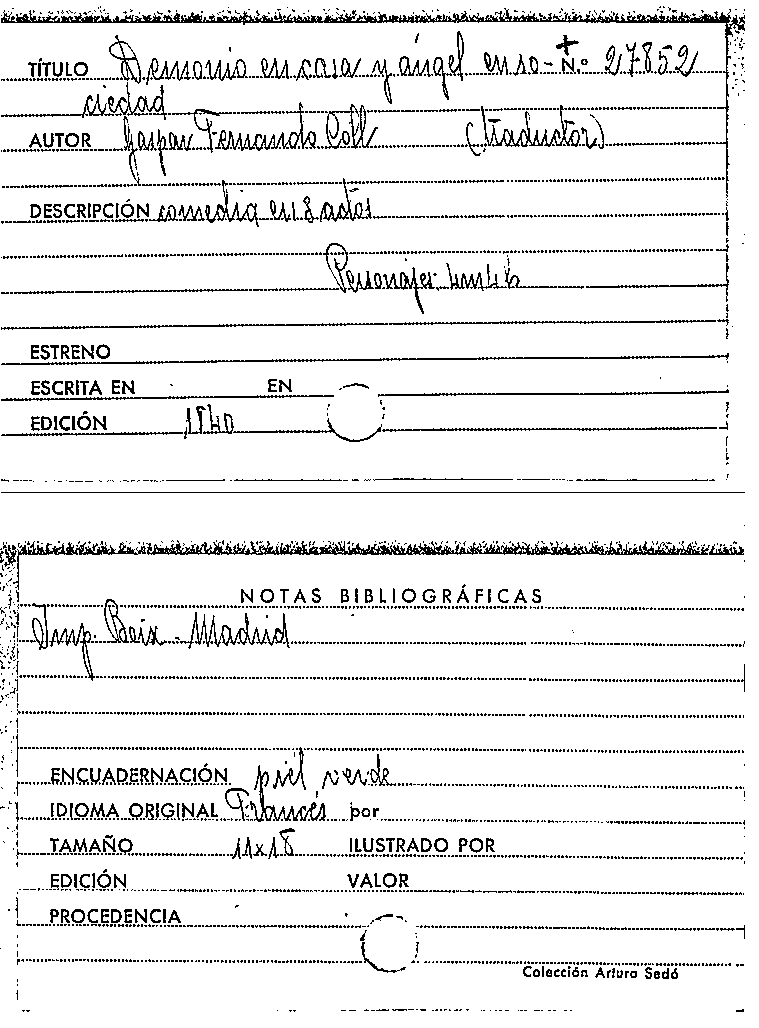 TÍTULO Demonio en casa y ángel en so- N.º 27852
ciedad
AUTOR Gaspar Fernando Coll (traductor)
DESCRIPCIÓN comedia en 3 actos
Personajes: 4m 4h
ESTRENO
ESCRITA EN EN
EDICIÓN 1840
NOTAS BIBLIOGRÁFICAS
Imp. Boix - Madrid
ENCUADERNACIÓN piel verde
IDIOMA ORIGINAL Francés por
TAMAÑO 11x18 ILUSTRADO POR
EDICIÓN VALOR
PROCEDENCIA
Colección Arturo Sedó